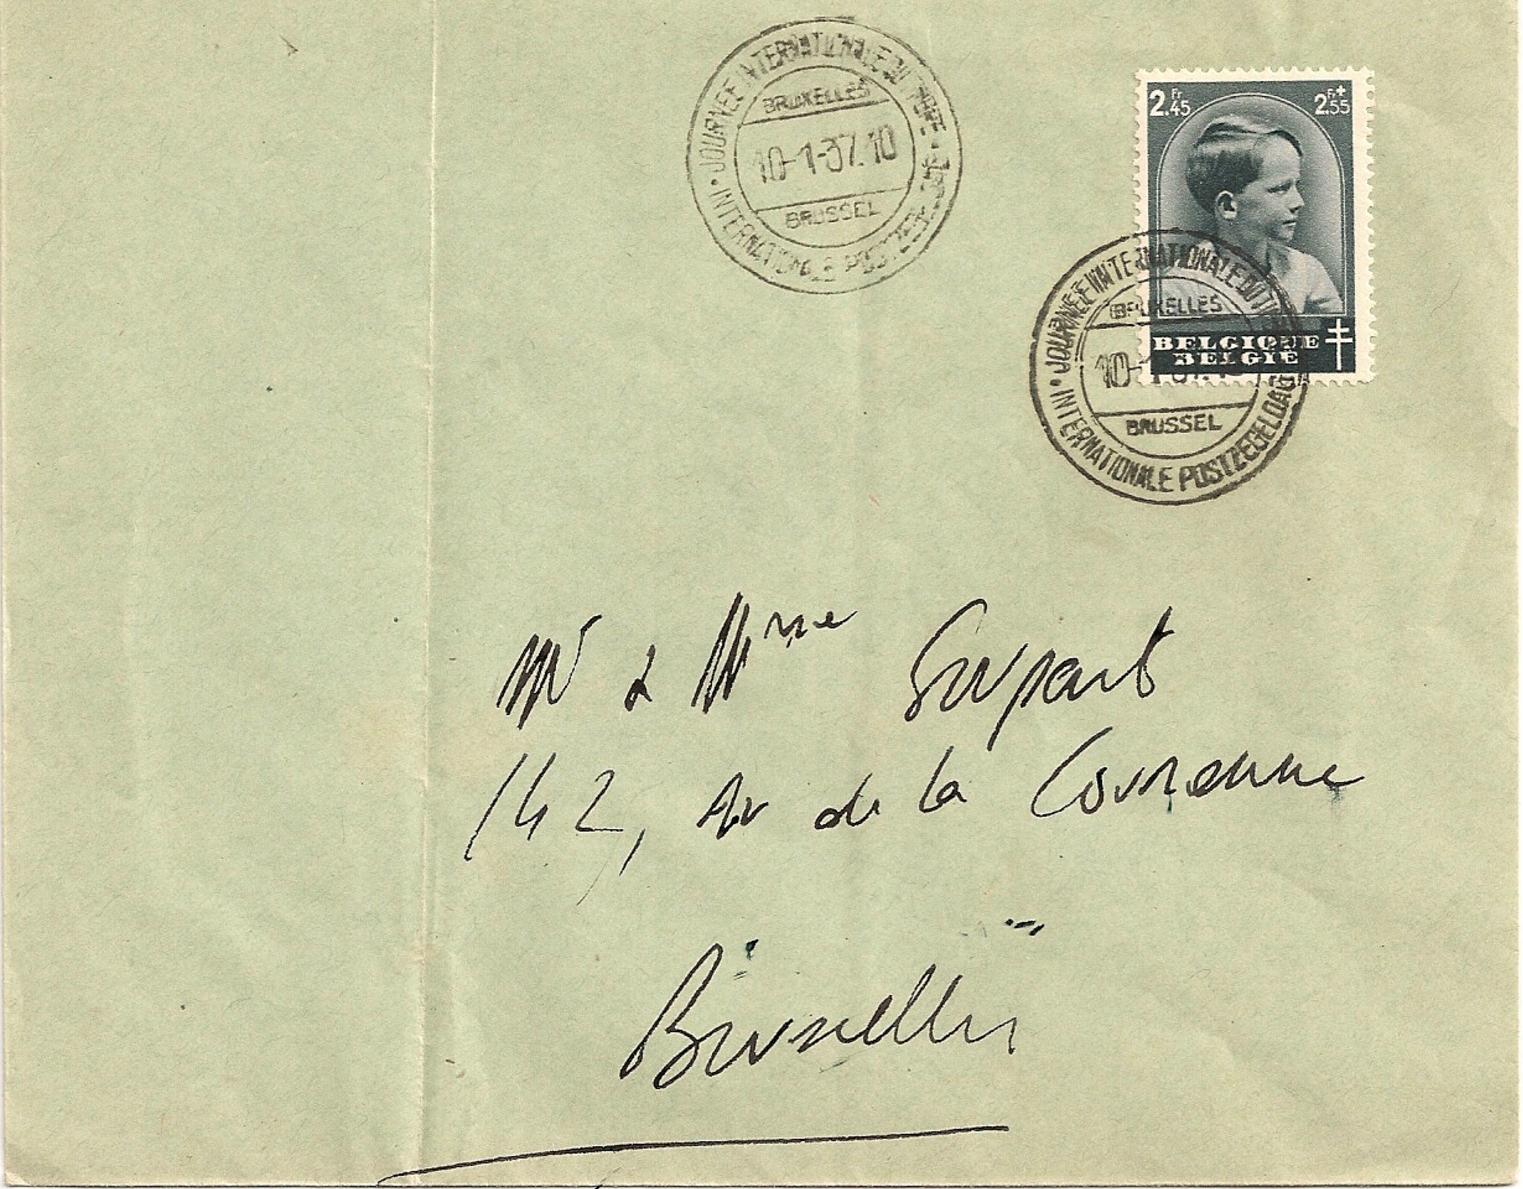 JOURNÉE INTERNATIONALE DU TIMBRE
BRUXELLES
10-1-37.10
BRUSSEL
INTERNATIONALE POSTZEGELDAG
2 Fr .45
2 Fr+ .55
BELGIQUE
BELGIË
JOURNÉE INTERNATIONALE DU TIMBRE
BRUXELLES
10-1-37.10
BRUSSEL
INTERNATIONALE POSTZEGELDAG
Mr & Mme
142, Av de la Couronne
Bruxelles